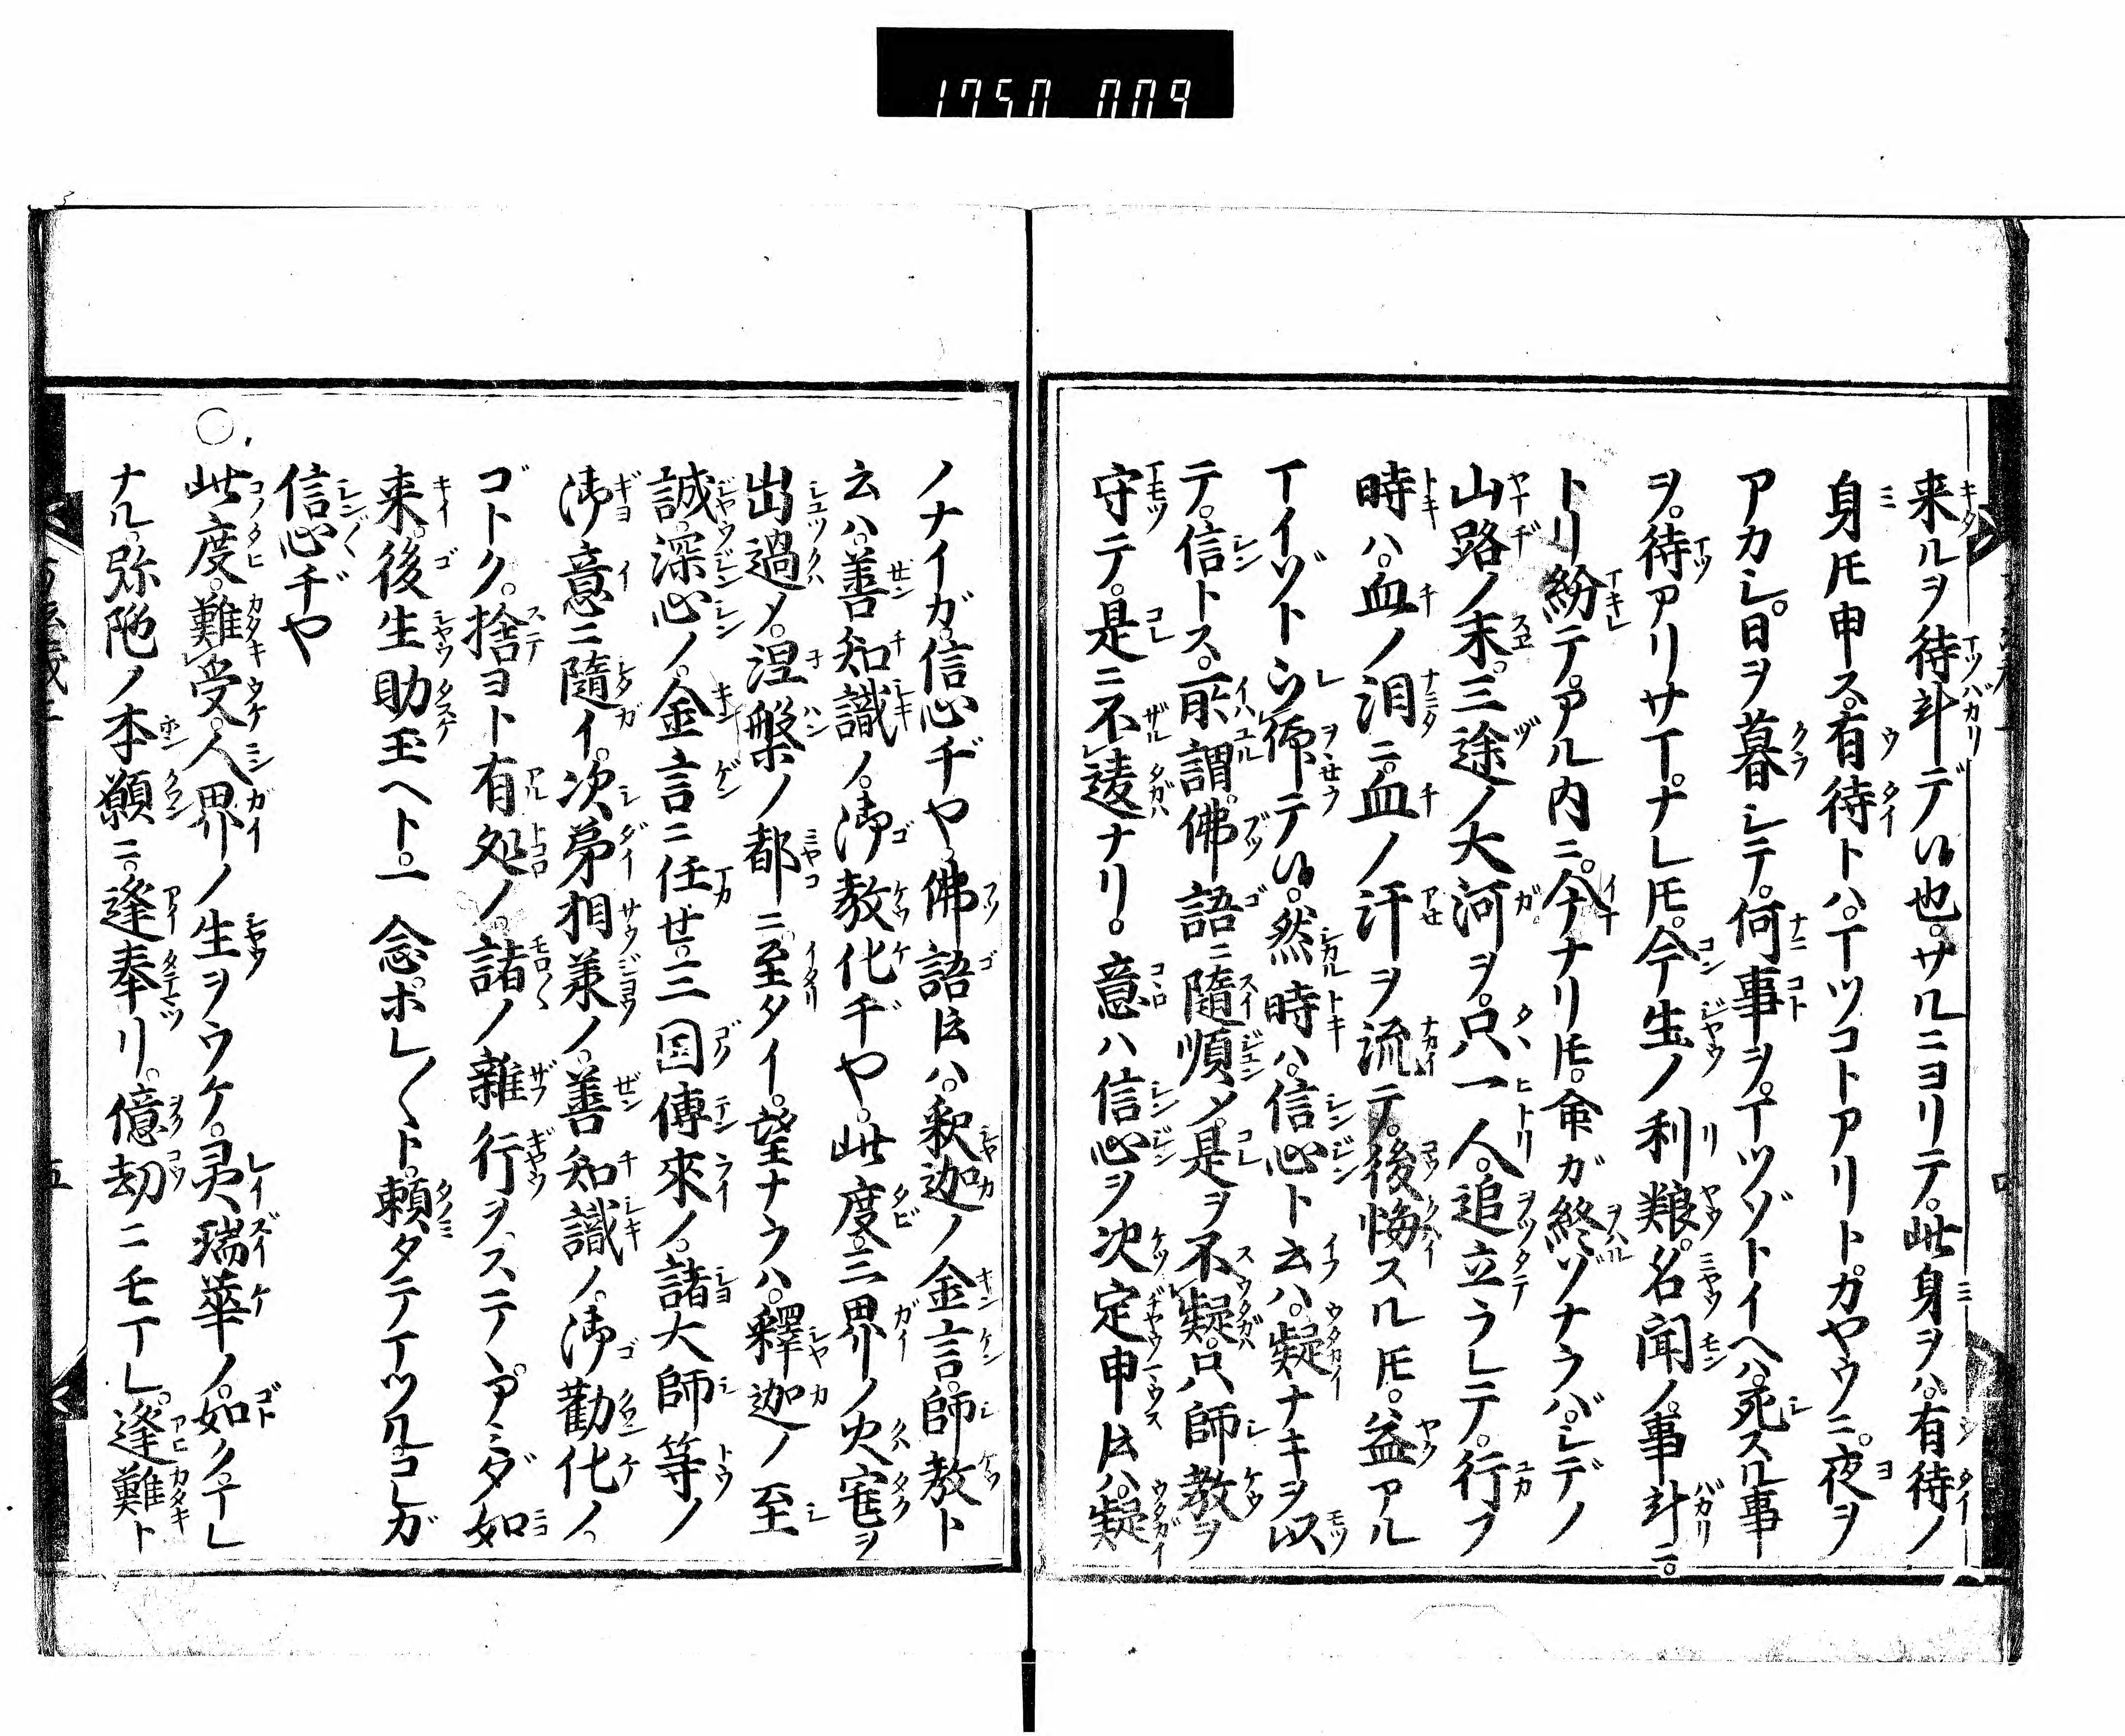 1750 009
来ルヲ待斗デ以也。サルニヨリテ。此身ヲハ。有待ノ
身𪜈申ス。有待トハ。マツコトアリト。カヤウニ。夜ヲ
アカシ。日ヲ暮シテ。何事ヲ。マツゾトイヘハ。死スル事
ヲ。待アリサマ。ナレ𪜈。今生ノ利粮。名聞ノ。事斗ニ。
トリ紛テ。アル内ニ。今ナリ𪜈。命ガ終ヅナラバ。シデノ
山路ノ末。三途ノ大河ヲ。只一人。追立ラレテ。行フ
時ハ。血ノ泪ニ。血ノ汗ヲ流テ。後悔スル𪜈。益アル
マイゾト。然時ハ。信心ト云ハ。疑ナキヲ以
テ。信トス。所謂。佛語ニ隨順〆。是ヲ不疑。只師教ヲ
守テ。是ニ不違ナリ。意ハ信心ヲ決定申𪜈ハ。疑
ノナイガ。信心ヂや。佛語𪜈ハ。釈迦ノ金言。師教ト
云ハ。善知識ノ。御教化ヂや。此度。三界ノ火宅ヲ
出過〆。涅槃ノ都ニ至タイ。望ナラハ。釋迦ノ至
誠。深心ノ。金言ニ任せ。三国傳來ノ。諸大師等ノ
御意ニ隨イ。次第相承ノ。善知識ノ。御勸化ノ。
ゴトク。捨ヨト有処ノ。諸ノ雜行ヲ。ステヽ。アミダ如
来。後生助玉ヘト。一念ホレ〱ト。頼タテマツル。コレガ
信心ヂや
○此度。難受。人界ノ生ヲウケ。灵瑞華ノ。如ク。マレ
ナル。弥陀ノ本願ニ。逢奉リ。億劫ニモマレ。逢難ト